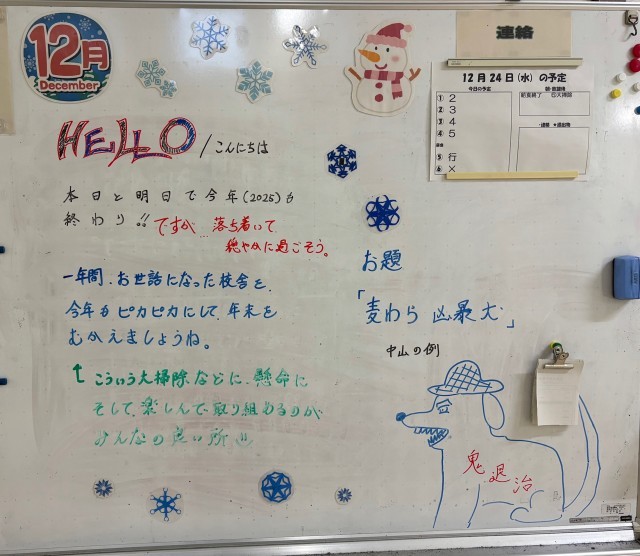 12月
December
連絡
12月24日(水)の予定
今日の予定
① 2
② 3
③ 4
④ 5
⑤ 行
⑥ ×
HELLO/こんにちは
本日と明日で今年(2025)も
終わり!! ですが…落ち着いて
穏やかに過ごそう。
一年間、お世話になった校舎を、
今年もピカピカにして、年末を
むかえましょうね。
↑こういう大掃除などに、懸命に
そして、楽しんで取り組めるのが
みんなの良い所
お題
「麦わら 凶暴犬」
中山の例
鬼退治